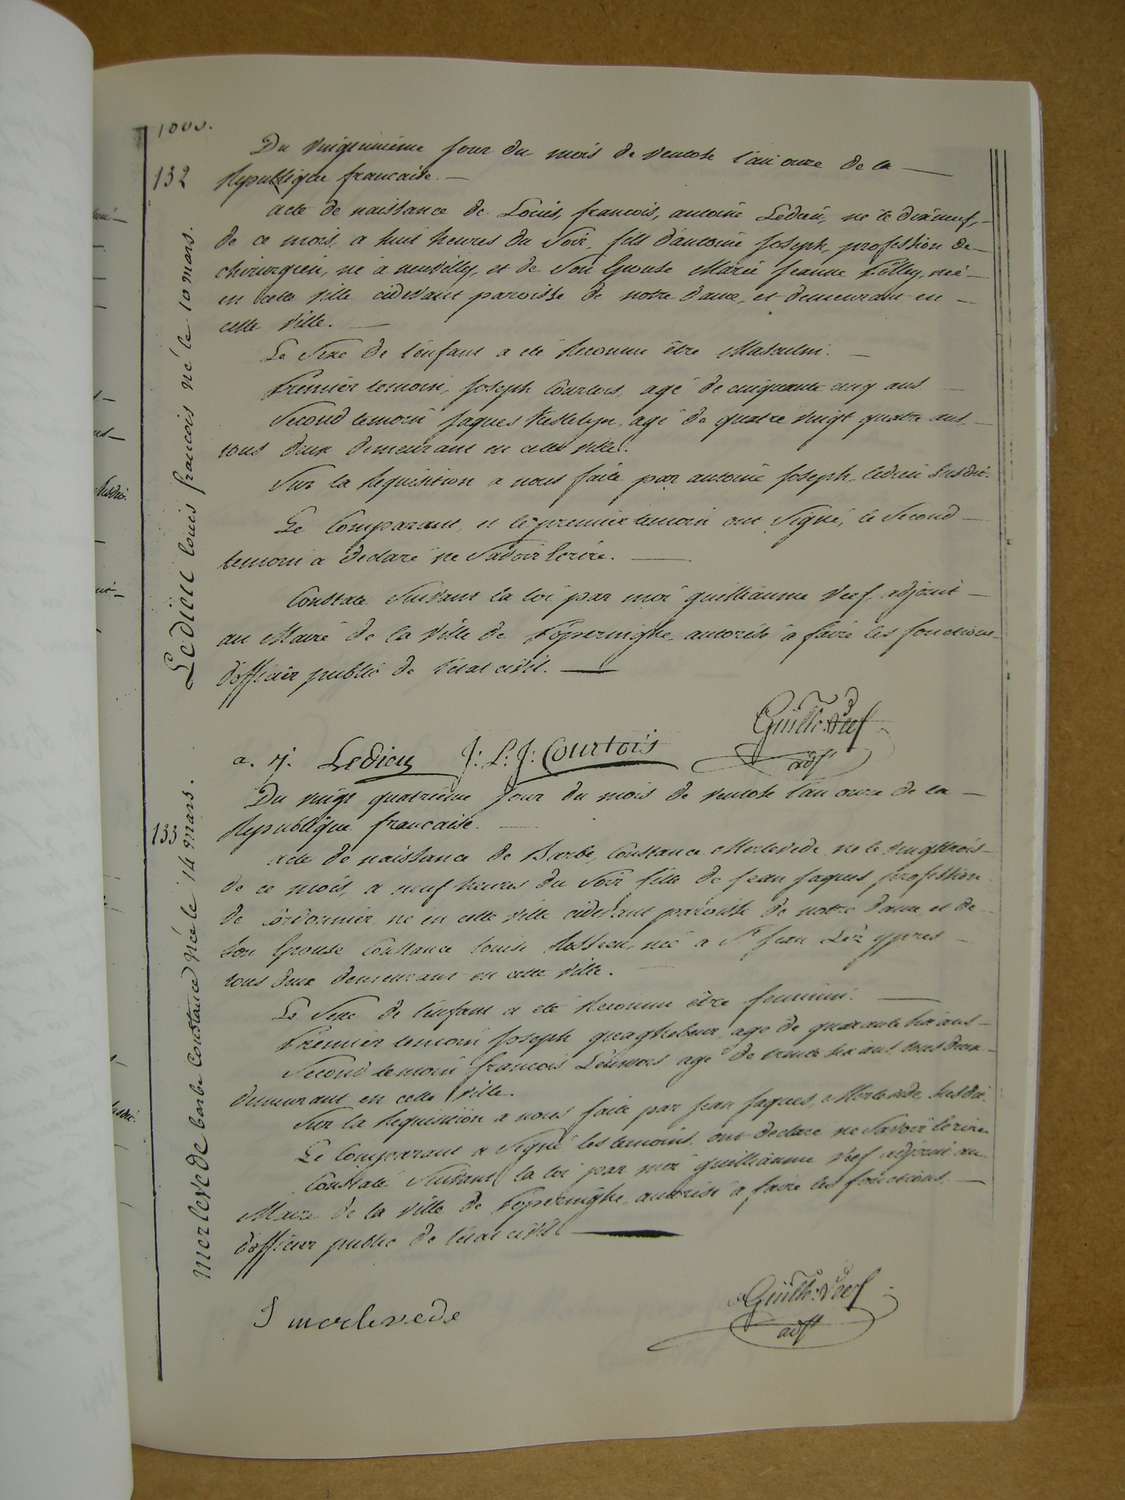 132
Du vingtunieme jour du mois de ventose l'an onze de la
Republique francaise.
acte de naissance de Louis, francois, antoine Ledieu, ne le dixneuf,
de ce mois, a huit heures du Soir, fils d'antoine Joseph, profession de
chirurgien, né a neuvilly, et de Son Epouse Marie Jeanne, neé
en cette ville cidevant paroisse de notre dame, et demeurant en
cette ville.
Le Sexe de l'enfant a eté Reconnu être Masculin.
Premier temoin, Joseph Courtois, agé de cinquante cinq ans
Second temoin Jaques, agé de quatre vingt quatre ans
tous deux demeurant en cette ville.
Sur la Requisition a nous faite par antoine Joseph Ledieu Susdit.
Le Comparant, et le premier temoin ont Signé, le Second
temoin a declaré ne Savoir Ecrire.
Constaté Suivant la loi par moi guilliaume Verf adjoint
au Maire de la Ville de Poperinghe, autorisé a faire les fonctions
d'officier public de l'etat civil.
Ledieu louis francois né le 10 mars.
a. j. Ledieu J: L: J: Courtois Guill: Verf
adjt
133
Du vingt quatrieme jour du mois de ventose l'an onze de la
Republique francaise.
acte de naissance de Barbe, Constance Merlevede, ne le vingttrois
de ce mois, a neuf heures du Soir fille de Jean Jaques, profession
de Cordonnier, ne en cette ville cidevant paroisse de notre dame, et de
Son Epouse Constance louise, neé a St Jean Lez ypres
tous deux demeurant en cette ville.
Le Sexe de l'enfant a eté Reconnu être feminin.
Premier temoin Joseph quaghebeur, agé de quarante Six ans
Second temoin francois agé de trente Six ans tous deux
demeurant en cette ville.
Sur la Requisition a nous faite par Jean Jaques, Merlevede Susdit.
Le Comparant a Signé les temoins ont declaré ne Savoir Ecrire
Constaté Suivant la loi par moi guilliaume Verf adjoint au
Maire de la Ville de Poperinghe, autorisé a faire les fonctions
d'officier public de l'etat civil
merlevede barbe Constance née le 14 mars.
J merlevede Guill: Verf
adjt